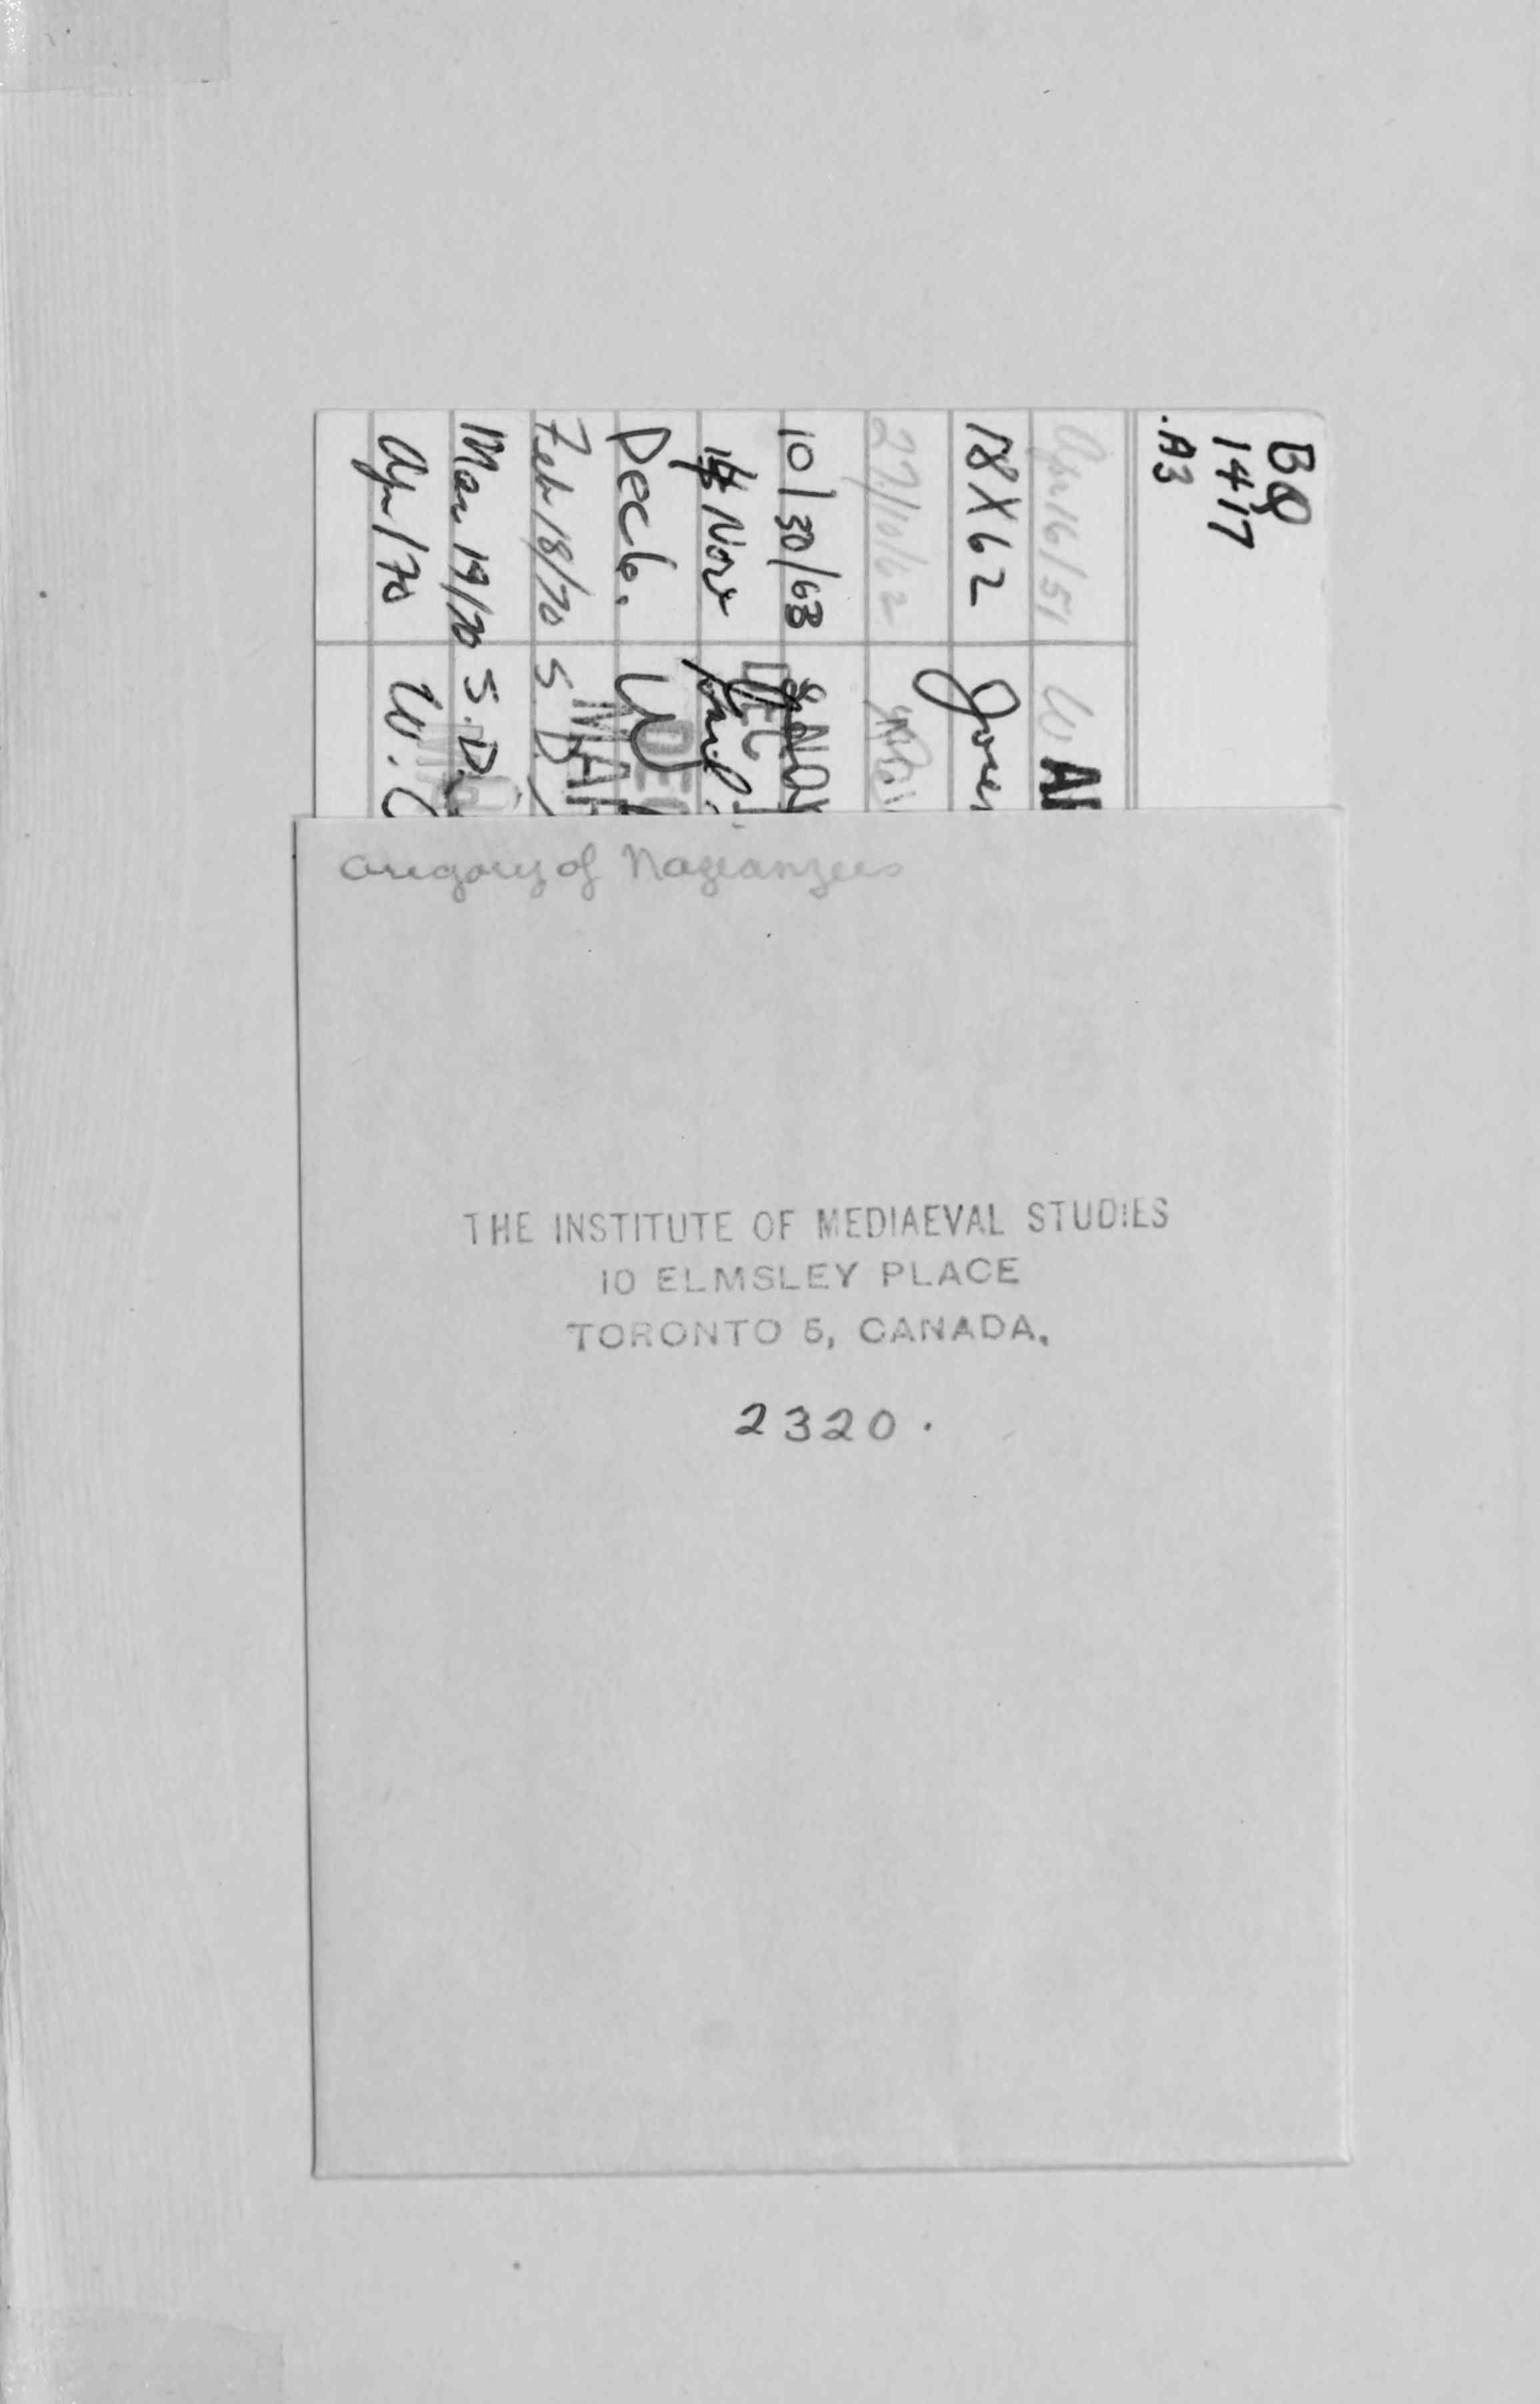 BQ
1417
.A3
Apr 16/51 W
18 X 62
27/10/62
10/30/63
14 Nov
Dec 6. W
Feb 18/70 S. D.
Mar 19/70 S. D.
Apr 1/70 W. C
Gregory of Nazianzus
THE INSTITUTE OF MEDIAEVAL STUDIES
10 ELMSLEY PLACE
TORONTO 5, CANADA.
2320.